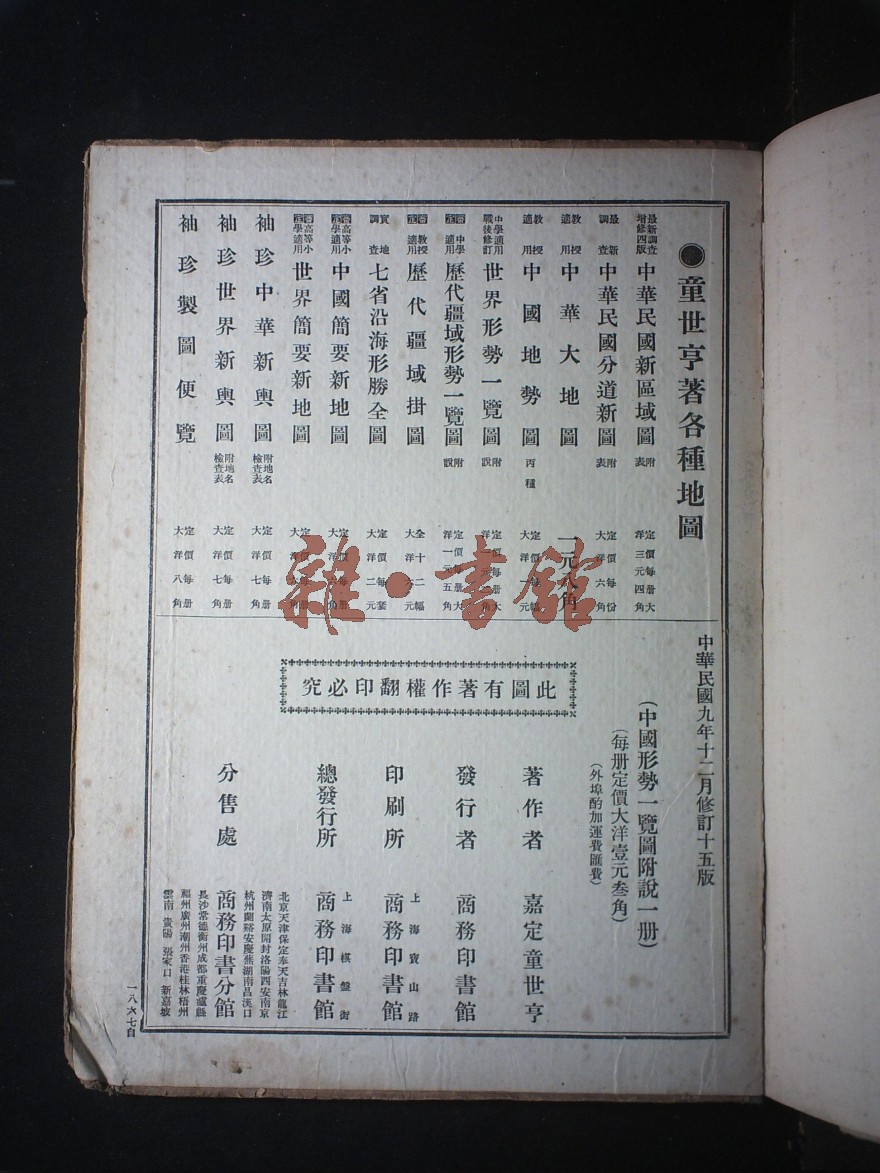 童世亨著各種地圖
最新調查增修四版 中華民國新區域圖 附表 定價每册大洋三元四角
最新調查 中華民國分道新圖 附表 定價每份大洋六角
教授適用 中華大地圖 一元八角
教授適用 中國地勢圖 丙種 定價每幅大洋一元
中學適用戰後修訂 世界形勢一覽圖 附說
中學適用 歷代疆域形勢一覽圖 附說 定價每册大洋一元五角
教授適用 歷代疆域掛圖 全十二幅大洋 元
實地調查 七省沿海形勝全圖 定價每套大洋二元
高等小學適用 中國簡要新地圖 定價每册大洋 角
高等小學適用 世界簡要新地圖 定價每册大洋 角
袖珍中華新輿圖 附地名檢查表 定價每册大洋七角
袖珍世界新輿圖 附地名檢查表 定價每册大洋七角
袖珍製圖便覽 定價每册大洋八角
雜·書館
中華民國九年十二月修訂十五版
(中國形勢一覽圖附說一册)
(每册定價大洋壹元叁角)
(外埠酌加運費匯費)
此圖有著作權翻印必究
著作者 嘉定童世亨
發行者 商務印書館
印刷所 上海寶山路 商務印書館
總發行所 上海棋盤街 商務印書館
分售處 商務印書分館
北京天津保定奉天吉林龍江
濟南太原開封洛陽西安南京
杭州蘭谿安慶蕪湖南昌漢口
長沙常德衡州成都重慶瀘縣
福州廣州潮州香港桂林梧州
雲南 貴陽 張家口 新嘉坡
一八六七自